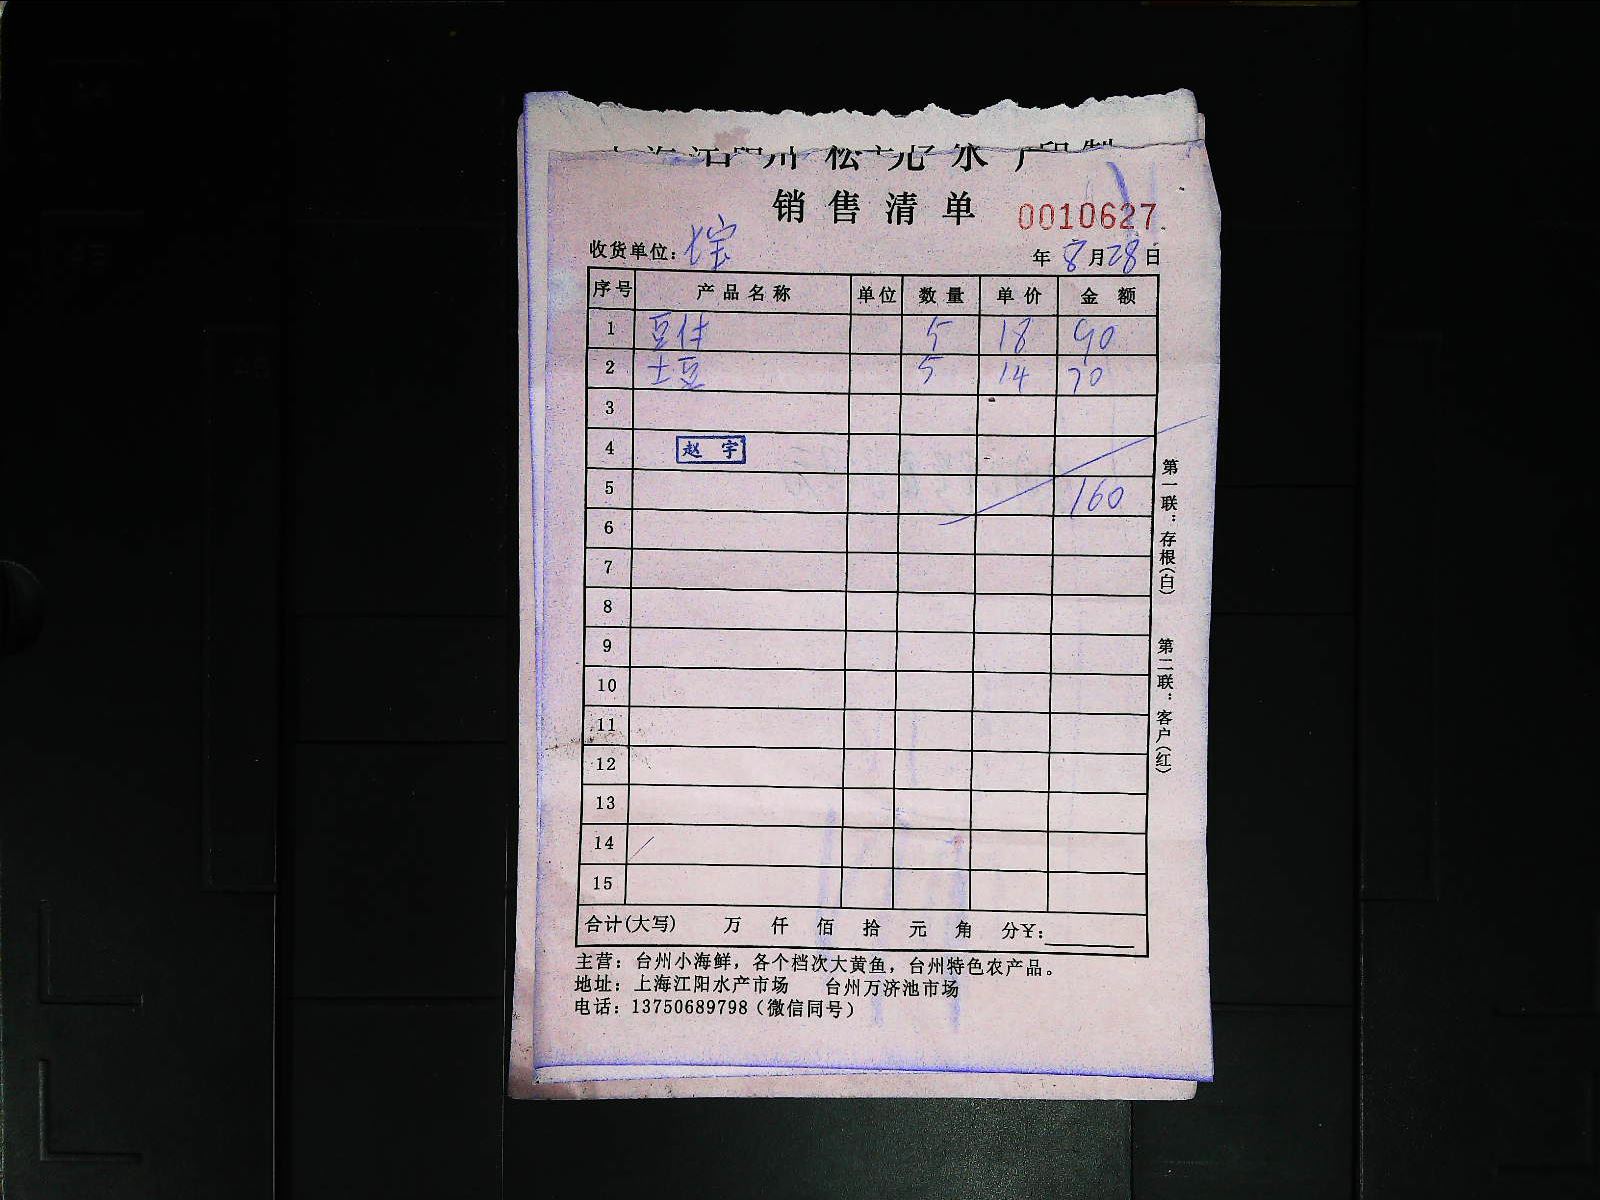 销售清单 0010627
收货单位: 年 8月28日
序号 产品名称 单位 数量 单价 金额
1 豆付 5 18 90
2 土豆 5 14 70
3
4 赵宇
5 160
6
7
8
9
10
11
12
13
14
15
合计(大写) 万 仟 佰 拾 元 角 分¥:
主营：台州小海鲜，各个档次大黄鱼，台州特色农产品。
地址：上海江阳水产市场 台州万济池市场
电话：13750689798（微信同号）
第一联：存根(白) 第二联：客户(红)